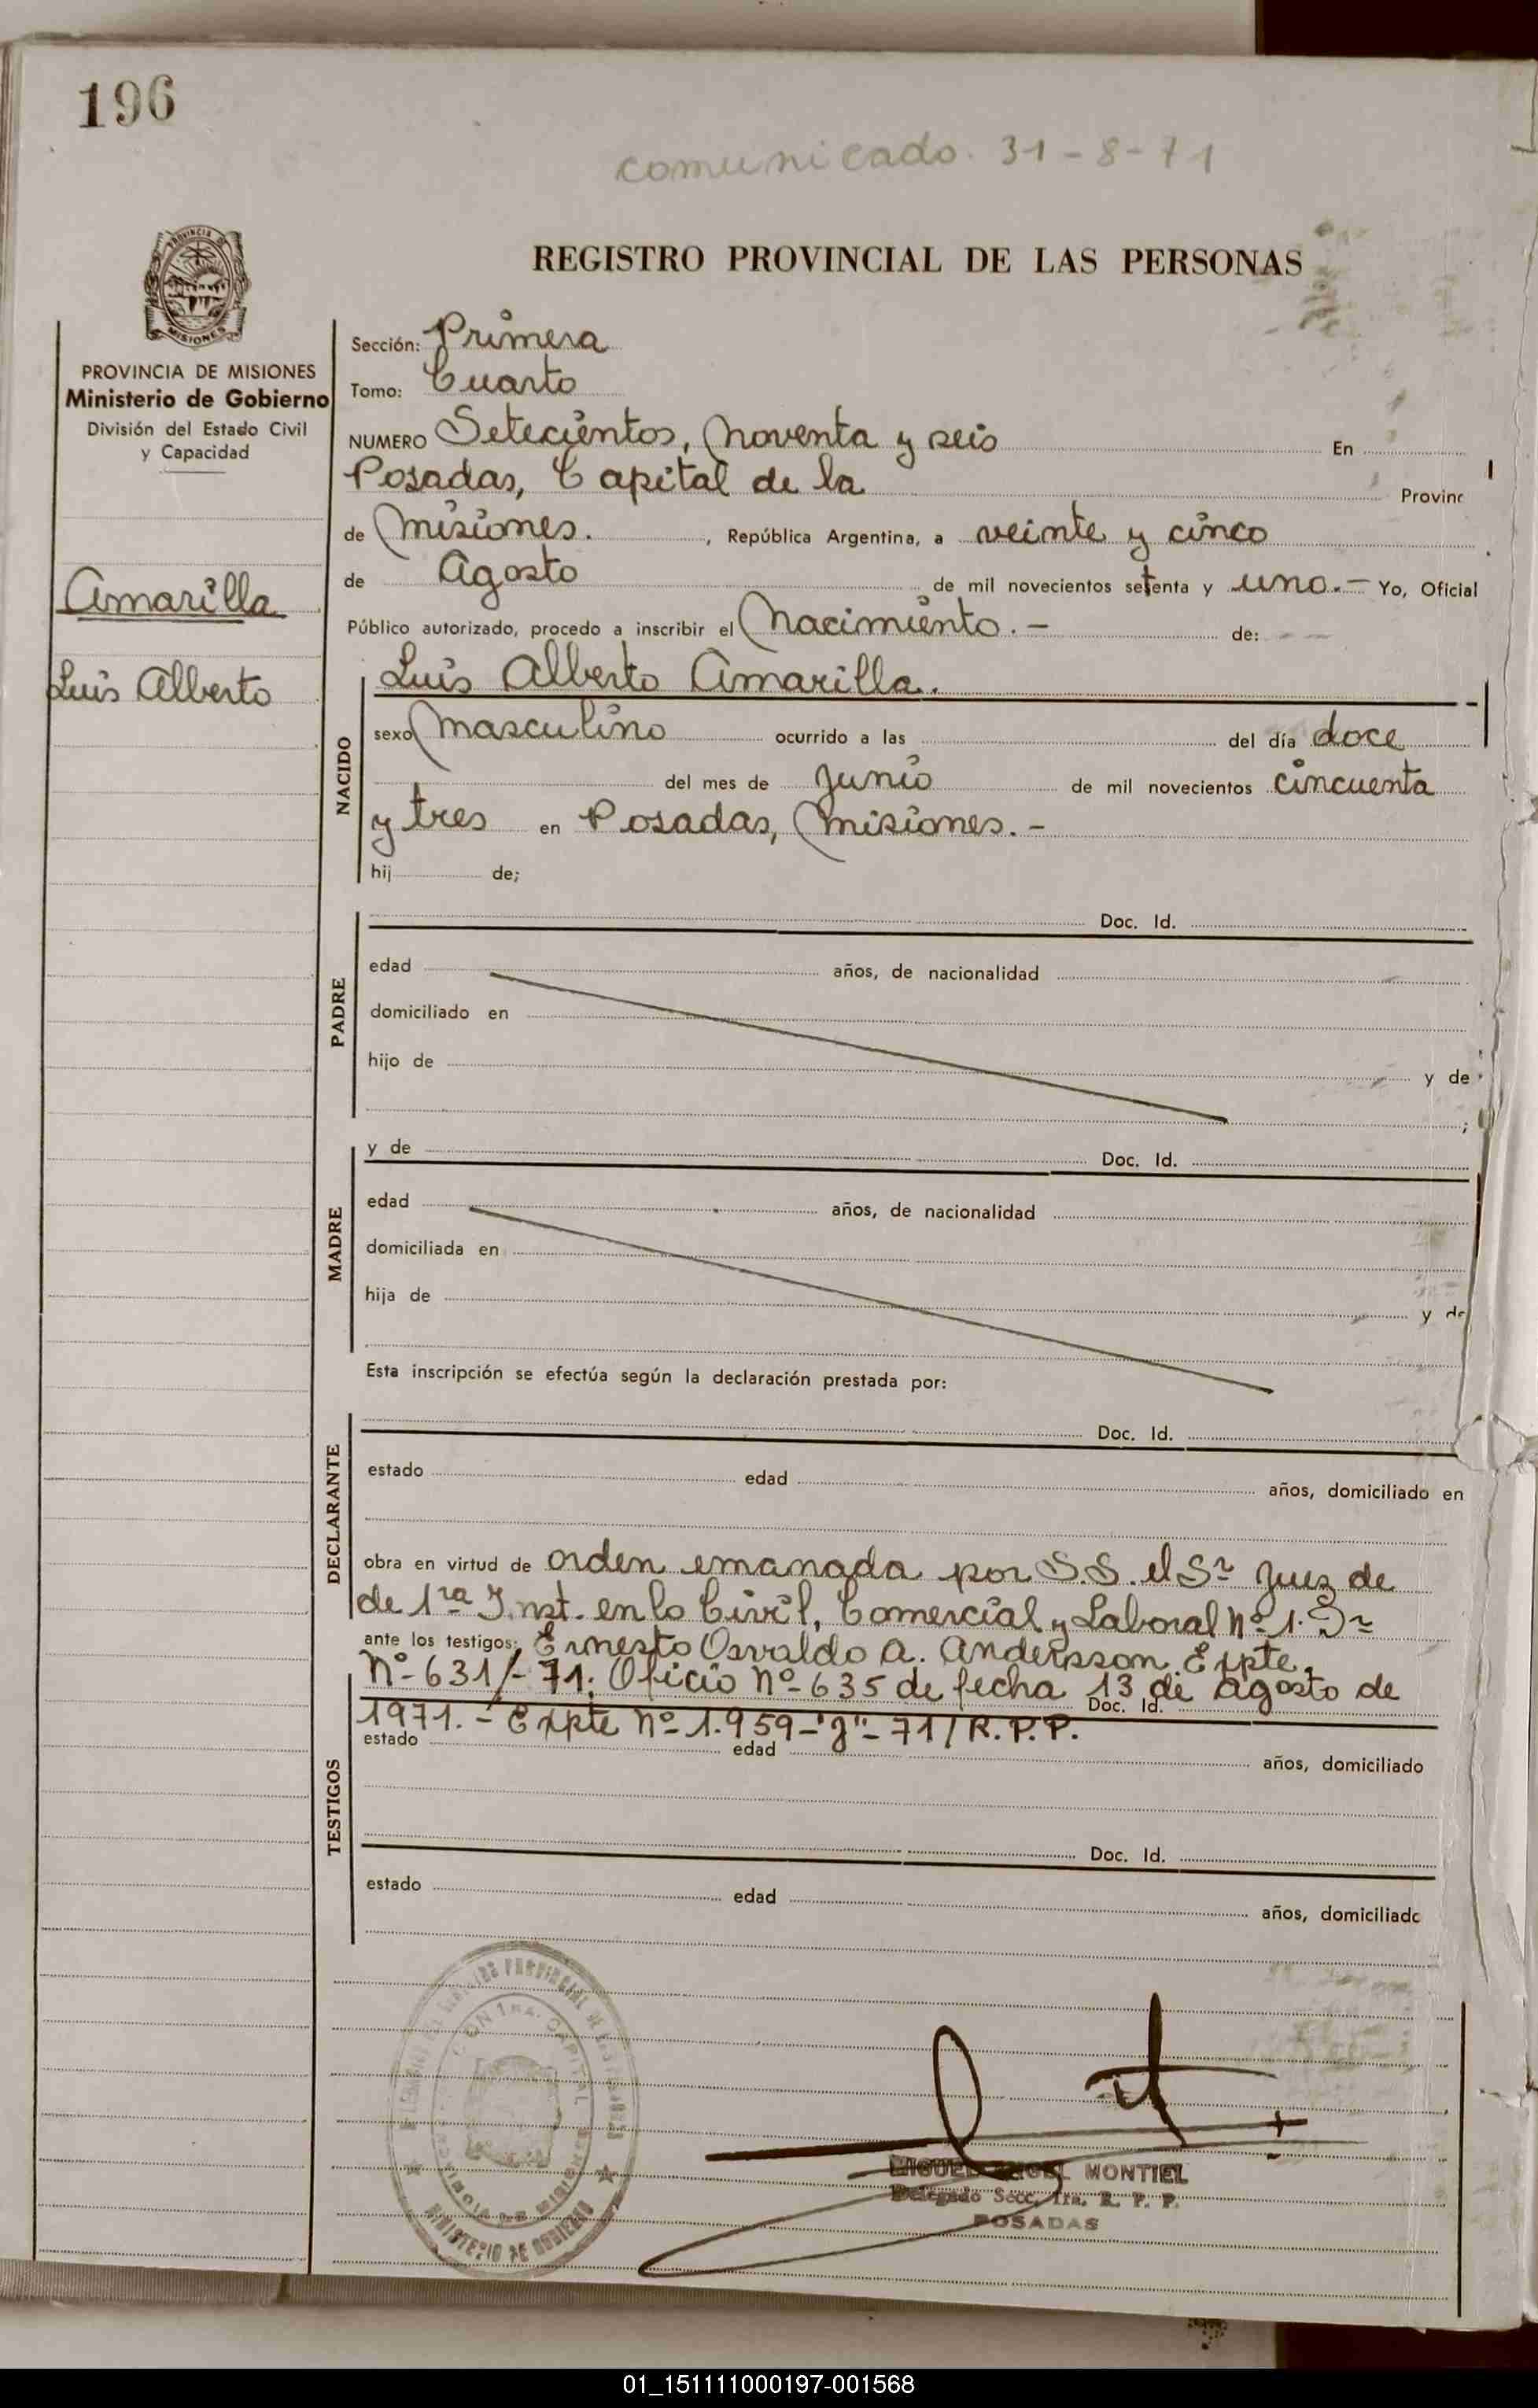 196
comunicado. 31-8-71
REGISTRO PROVINCIAL DE LAS PERSONAS
PROVINCIA DE MISIONES
PROVINCIA DE MISIONES
Ministerio de Gobierno
División del Estado Civil
y Capacidad
Amarilla
Luis Alberto
Sección: Primera
Tomo: Cuarto
NUMERO Setecientos, Noventa y seis En
Posadas, Capital de la Provinc
de Misiones. , República Argentina, a veinte y cinco
de Agosto de mil novecientos setenta y uno.- Yo, Oficial
Público autorizado, procedo a inscribir el Nacimiento.- de:
NACIDO
Luis Alberto Amarilla.
sexo Masculino ocurrido a las del día doce
del mes de Junio de mil novecientos cincuenta
y tres en Posadas, Misiones.-
hij de;
PADRE
Doc. Id.
edad años, de nacionalidad
domiciliado en
hijo de y de
;
MADRE
y de Doc. Id.
edad años, de nacionalidad
domiciliada en
hija de y de
Esta inscripción se efectúa según la declaración prestada por:
DECLARANTE
Doc. Id.
estado edad años, domiciliado en
obra en virtud de orden emanada por S.S. el Sr Juez de
de 1ra Inst. en lo Civil, Comercial y Laboral Nº 1. Dr
ante los testigos: Ernesto Osvaldo A. Andersson. Expte.
Nº-631/-71; Oficio Nº-635 de fecha 13 de agosto de
Doc. Id.
1971.- Expte Nº-1.959-"J"-71/R.P.P.
TESTIGOS
estado edad años, domiciliado
Doc. Id.
estado edad años, domiciliado
REGISTRO PROVINCIAL DE LAS PERSONAS
CAPITAL
MINISTERIO DE GOBIERNO
MIGUEL ANGEL MONTIEL
Delegado Secc. 1ra. R. P. P.
POSADAS
01_151111000197-001568